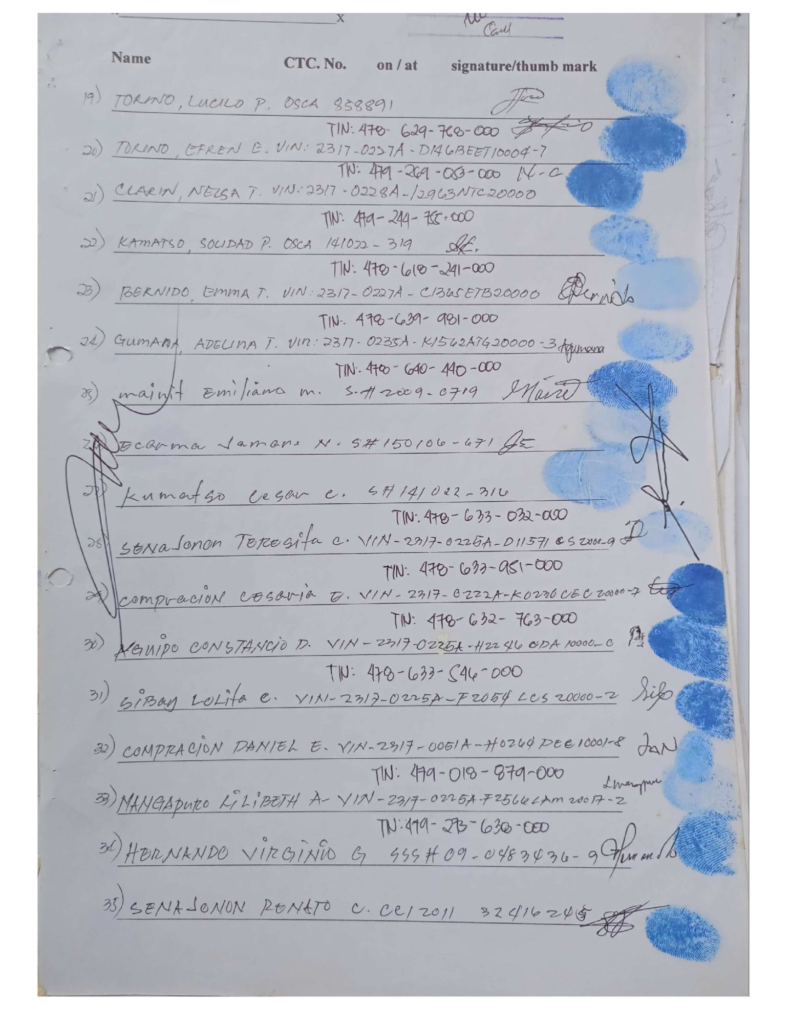 x
Name CTC. No. on / at signature/thumb mark
19) TORINO, LUCILO P. OSCA 858891
TIN: 478-629-768-000
20) TORINO, EFREN E. VIN: 2317-0227A-D146BEET10004-7
TIN: 479-269-053-000 N-C
21) CLARIN, NELSA T. VIN: 2317-0228A-12963NTC20000
TIN: 479-244-755-000
22) KAMATSO, SOLIDAD P. OSCA 141022-319
TIN: 478-618-241-000
23) BERNIDO, EMMA T. VIN: 2317-0227A-C1365ETB20000
TIN: 478-639-981-000
24) GUMANA, ADELINA T. VIN: 2317-0235A-K1562ATG20000-3 Agumana
TIN: 478-640-440-000
25) mainit Emiliano m. S.# 2009-0719
Ecarma N. S#150106-671
27) Kumatso Cesar C. S#141022-316
TIN: 478-633-032-000
28) SENAJONON TERESITA C. VIN-2317-0225A-D11571
TIN: 478-633-951-000
29) compracion cesaria E. VIN-2317-0222A-K0230CEC20000-7
TIN: 478-632-763-000
30) AGUIPO CONSTANCIO D. VIN-2317-0225A-H2246 CDA 10000-0
TIN: 478-633-546-000
31) SiBay LoLita C. VIN-2317-0225A-F2054 LCS 20000-2
32) COMPRACION DANIEL E. VIN-2317-0051A-H0264 DEC10001-8 JAN
TIN: 479-018-879-000
33) MANGAPURO LiLiBETH A- VIN-2317-0225A-F2566LAM 20017-2
TIN: 479-273-638-000
34) HERNANDO VIRGINIO G SSS# 09-0483436-9
35) SENAJONON RENATO C. CCI2011 32416245